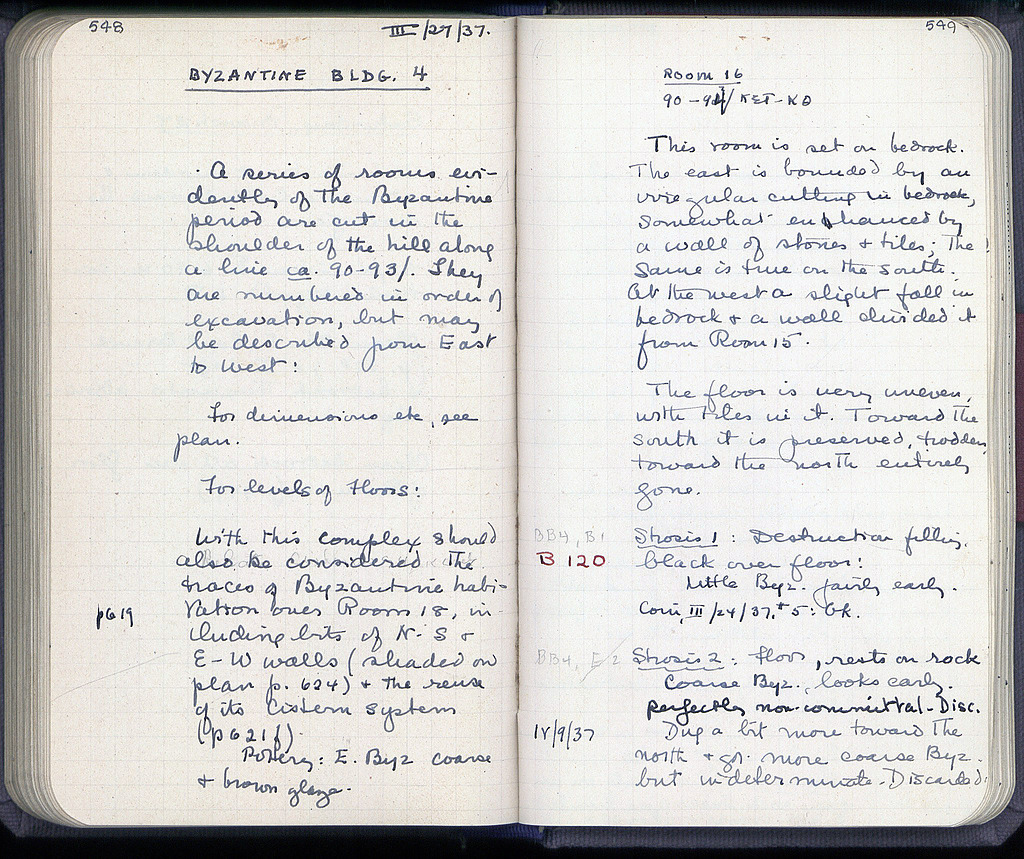 548
III/27/37.
BYZANTINE BLDG. 4
A series of rooms evi-
dently of the Byzantine
period are cut in the
shoulder of the hill along
a line ca. 90-93/. They
are numbered in order of
excavation, but may
be described from East
to West:
For dimensions etc, see
plan.
For levels of floors:
With this complex should
also be considered the
traces of Byzantine habi-
tation over Room 18, in-
p619
cluding bits of N-S +
E-W walls (shaded on
plan p. 624) + the reuse
of its cistern system
(p621f).
Pottery: E. Byz coarse
+ brown glaze.
549
ROOM 16
90-94/ KET-KO
This room is set on bedrock.
The east is bounded by an
irregular cutting in bedrock,
somewhat enhanced by
a wall of stones + tiles; The
same is true on the south.
At the west a slight fall in
bedrock + a wall divided it
from Room 15.
The floor is very uneven,
with tiles in it. Toward the
south it is preserved, trodden,
toward the north entirely
gone.
BB4, B1
Strosis 1: Destruction filling,
B 120
black over floor:
Little Byz. fairly early.
Coin, III/24/37, #5: Ok.
BB4, E2
Strosis 2: floor, rests on rock
Coarse Byz., looks early.
perfectly non-committal - Disc.
IV/9/37
Dug a bit more toward the
north + got more coarse Byz.
but indeterminate. Discarded